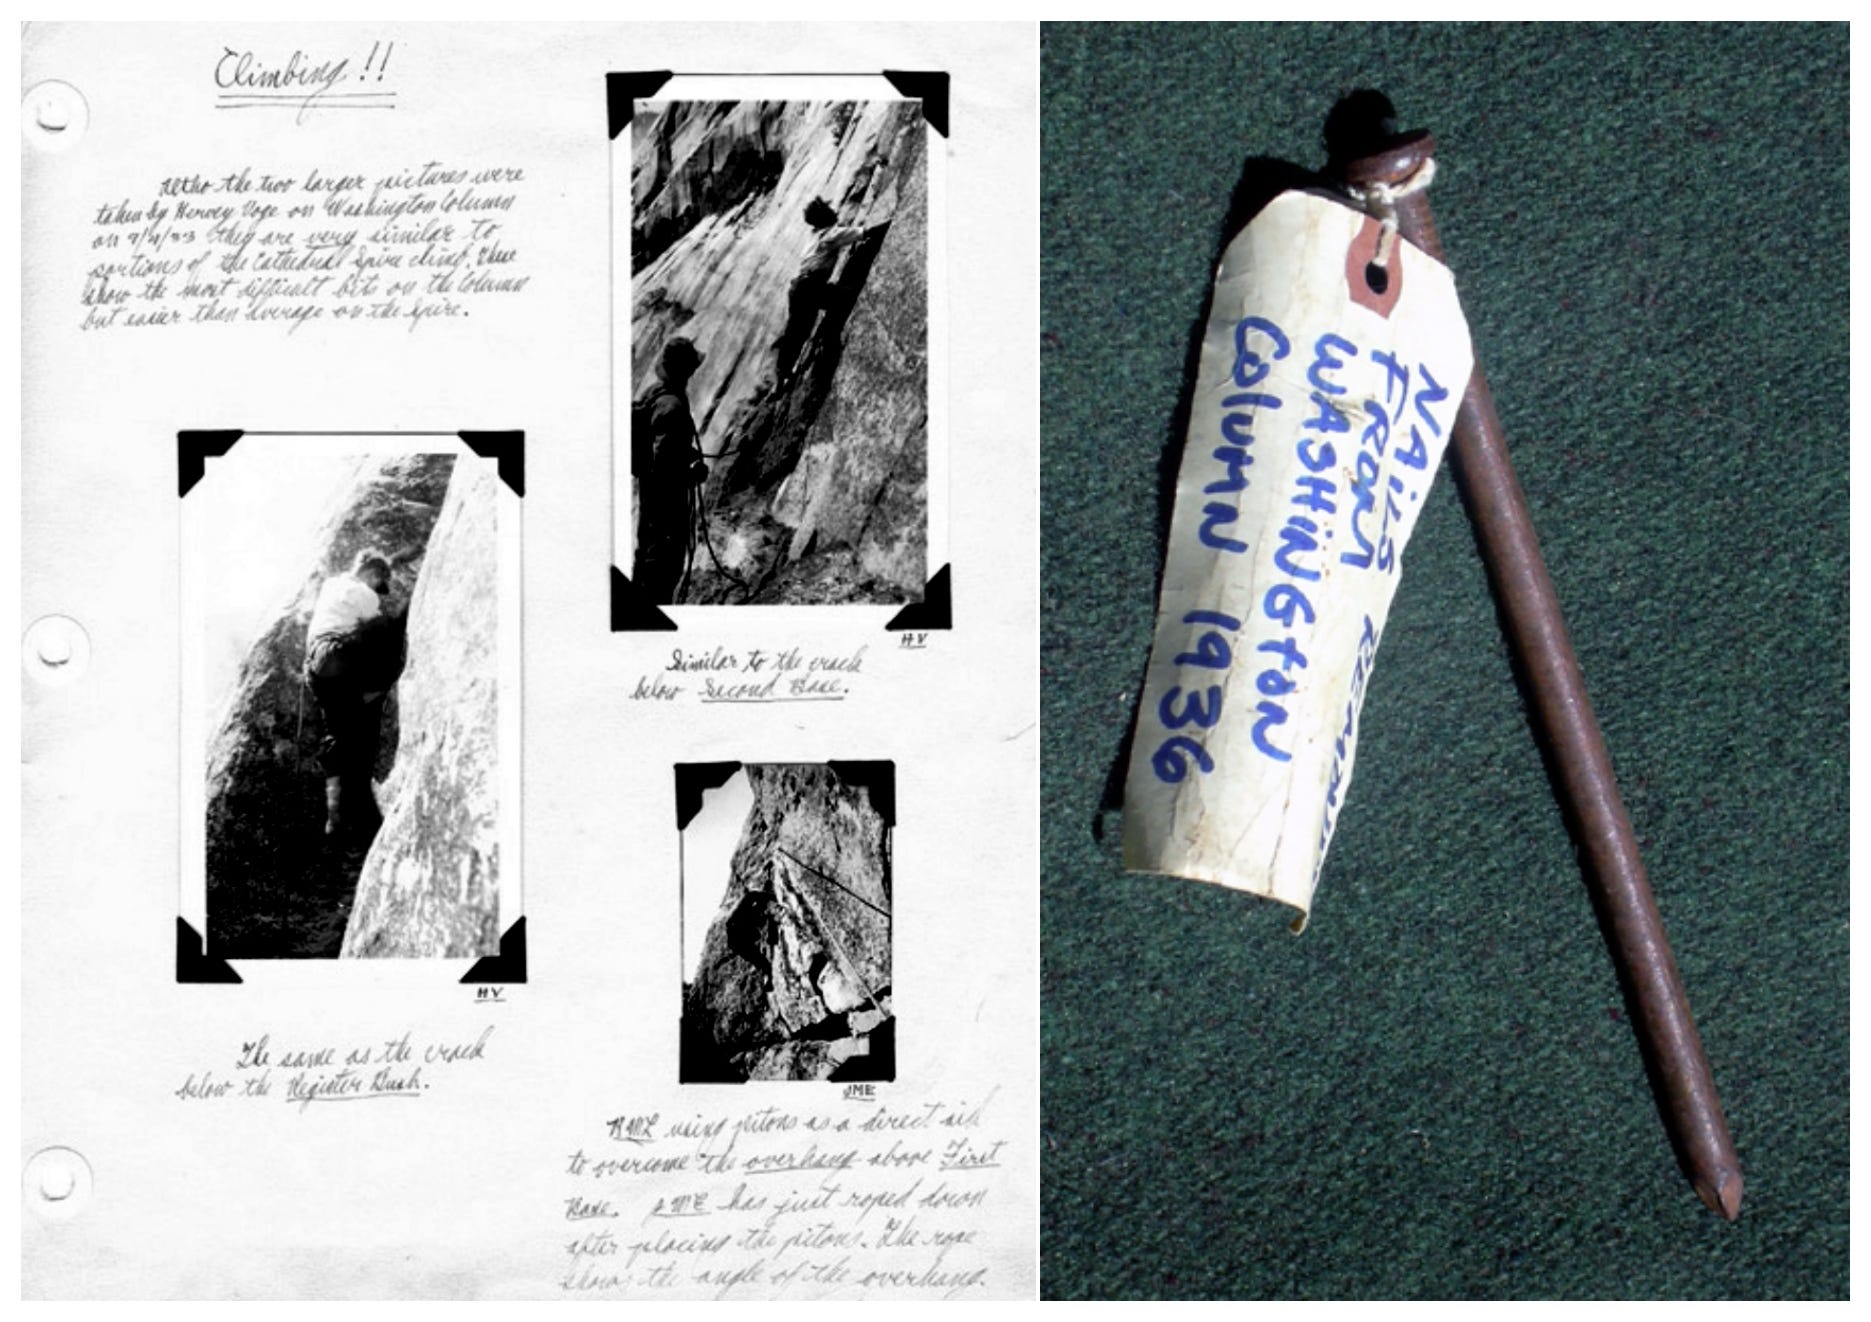 Climbing!!
Altho the two larger pictures were
taken by Hervey Voge on Washington Column
on 9/4/33 they are very similar to
portions of the Cathedral Spire climb. These
show the most difficult bits on the Column
but easier than average on the Spire.
HV
Similar to the crack
below Second Base.
HV
The same as the crack
below the Register Bush.
JME
RML using pitons as a direct aid
to overcome the overhang above First
Base. JME has just roped down
after placing the pitons. The rope
shows the angle of the overhang.
NAILS
FROM
WASHINGTON
COlUMN 1936